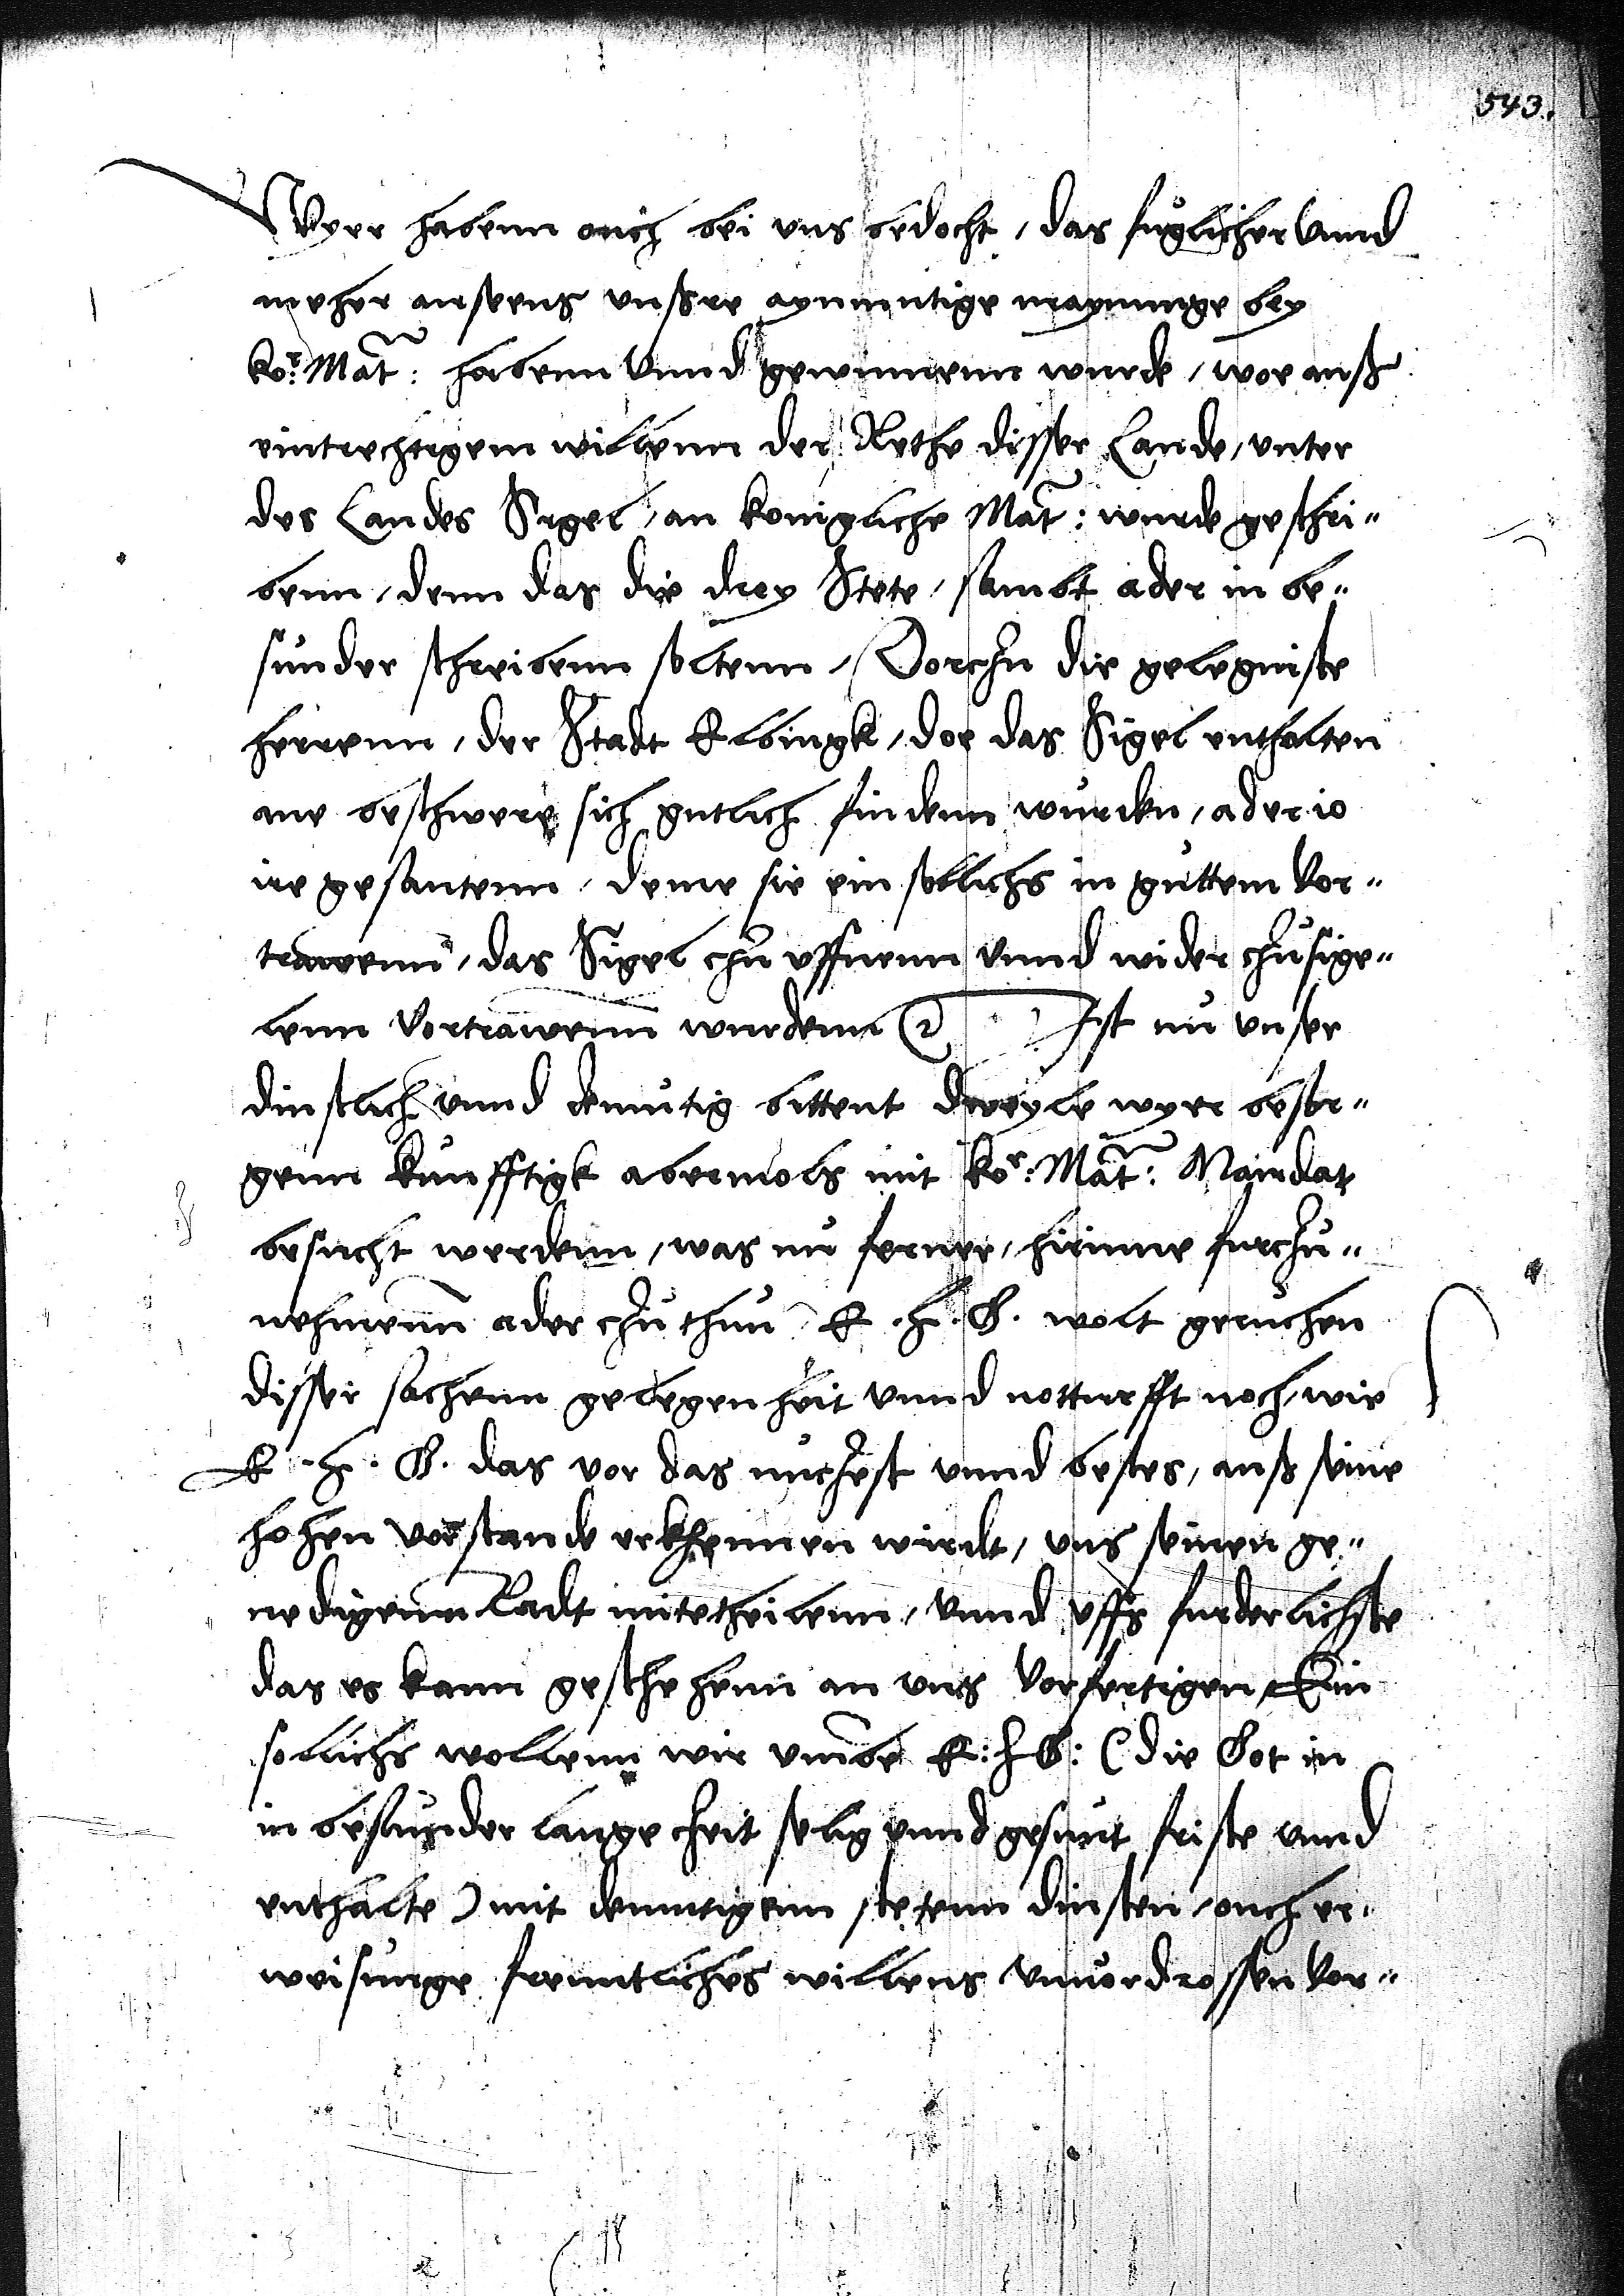 543.
Wyer habenn auch bei uns bedocht, das fuglicher vnnd
meher ansehens vnsere aynmutige maynunge bey
ko.r Mat: habenn vnnd gewinnenn wurde, wor auß
eintrechtigem willenn der Rethe disser Lande, unter
des Landes Sigel, an konigliche Mat: wurde geschri„
benn, denn das die drey Stete, sambt ader in be„
sunder schreibenn soltenn, Dorczu die gelegniste
herrenn, der Stadt Elbingk, dor das Sigel enthalten
ane beschwere sich gutlich findenn wurden, ader io
ire gesantenn, deme sie ein sollichs in guttem vor„
trawenn, das Sigel czu uffnenn vnnd wider czusige„
lenn vortrawenn wurdenn Ist nu unser
dinstlich vnnd demutig bittent dweyle wyer besor„
genn kunfftigk abermols mit ko.r Mat: Mandat
besucht werdenn, was nu ferner, hirinne furczu„
nehmenn ader czu thun E. H. G. wolt geruchen
disser sachenn gelegenheit vnnd notturfft noch, wie
E. H. G. das vor das nuczest vnnd bestes, auß seine
hohen vorstande erkhennen wirdt, uns seinen ge„
nedigenn Radt mitetheilenn, vnnd uffs furderlichste
das es kann geschehenn an uns vorfertigen Ein
sollichs wollenn wir umbe E: H G: (die Got in
in besunder lange czeit selig vnnd gesunt friste vnnd
enthalte) mit demutigenn stetenn dinsten, auch er„
weisunge freuntliches willens vnuordrossen vor„